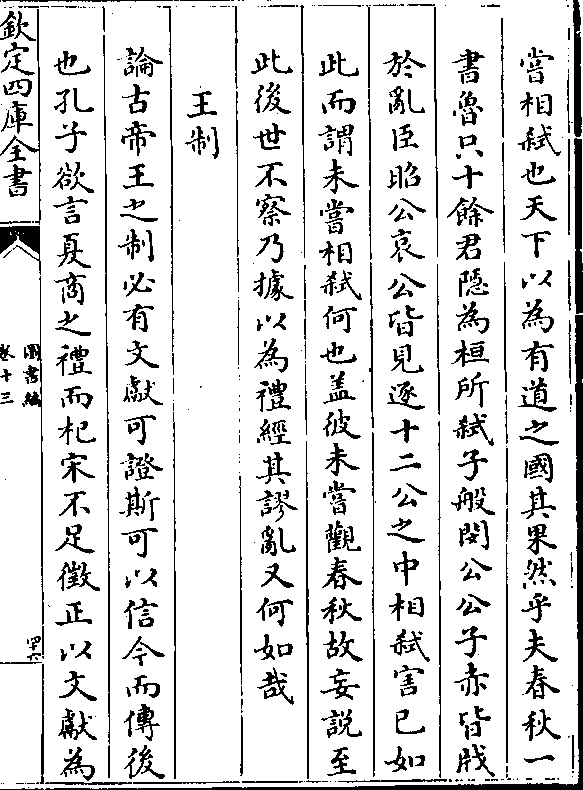 嘗相弑也天下以為有道之國其果然乎夫春秋一
書魯只十餘君隱為桓所弑子般閔公公子赤皆戕
於亂臣昭公哀公皆見逐十二公之中相弑害已如
此而謂未嘗相弑何也盖彼未嘗觀春秋故妄説至
此後世不察乃據以為禮經其謬亂又何如哉
王制
論古帝王之制必有文獻可證斯可以信今而傳後
也孔子欲言夏商之禮而杞宋不足徵正以文獻為
欽定四庫全書
圖書編
卷十三
四十六